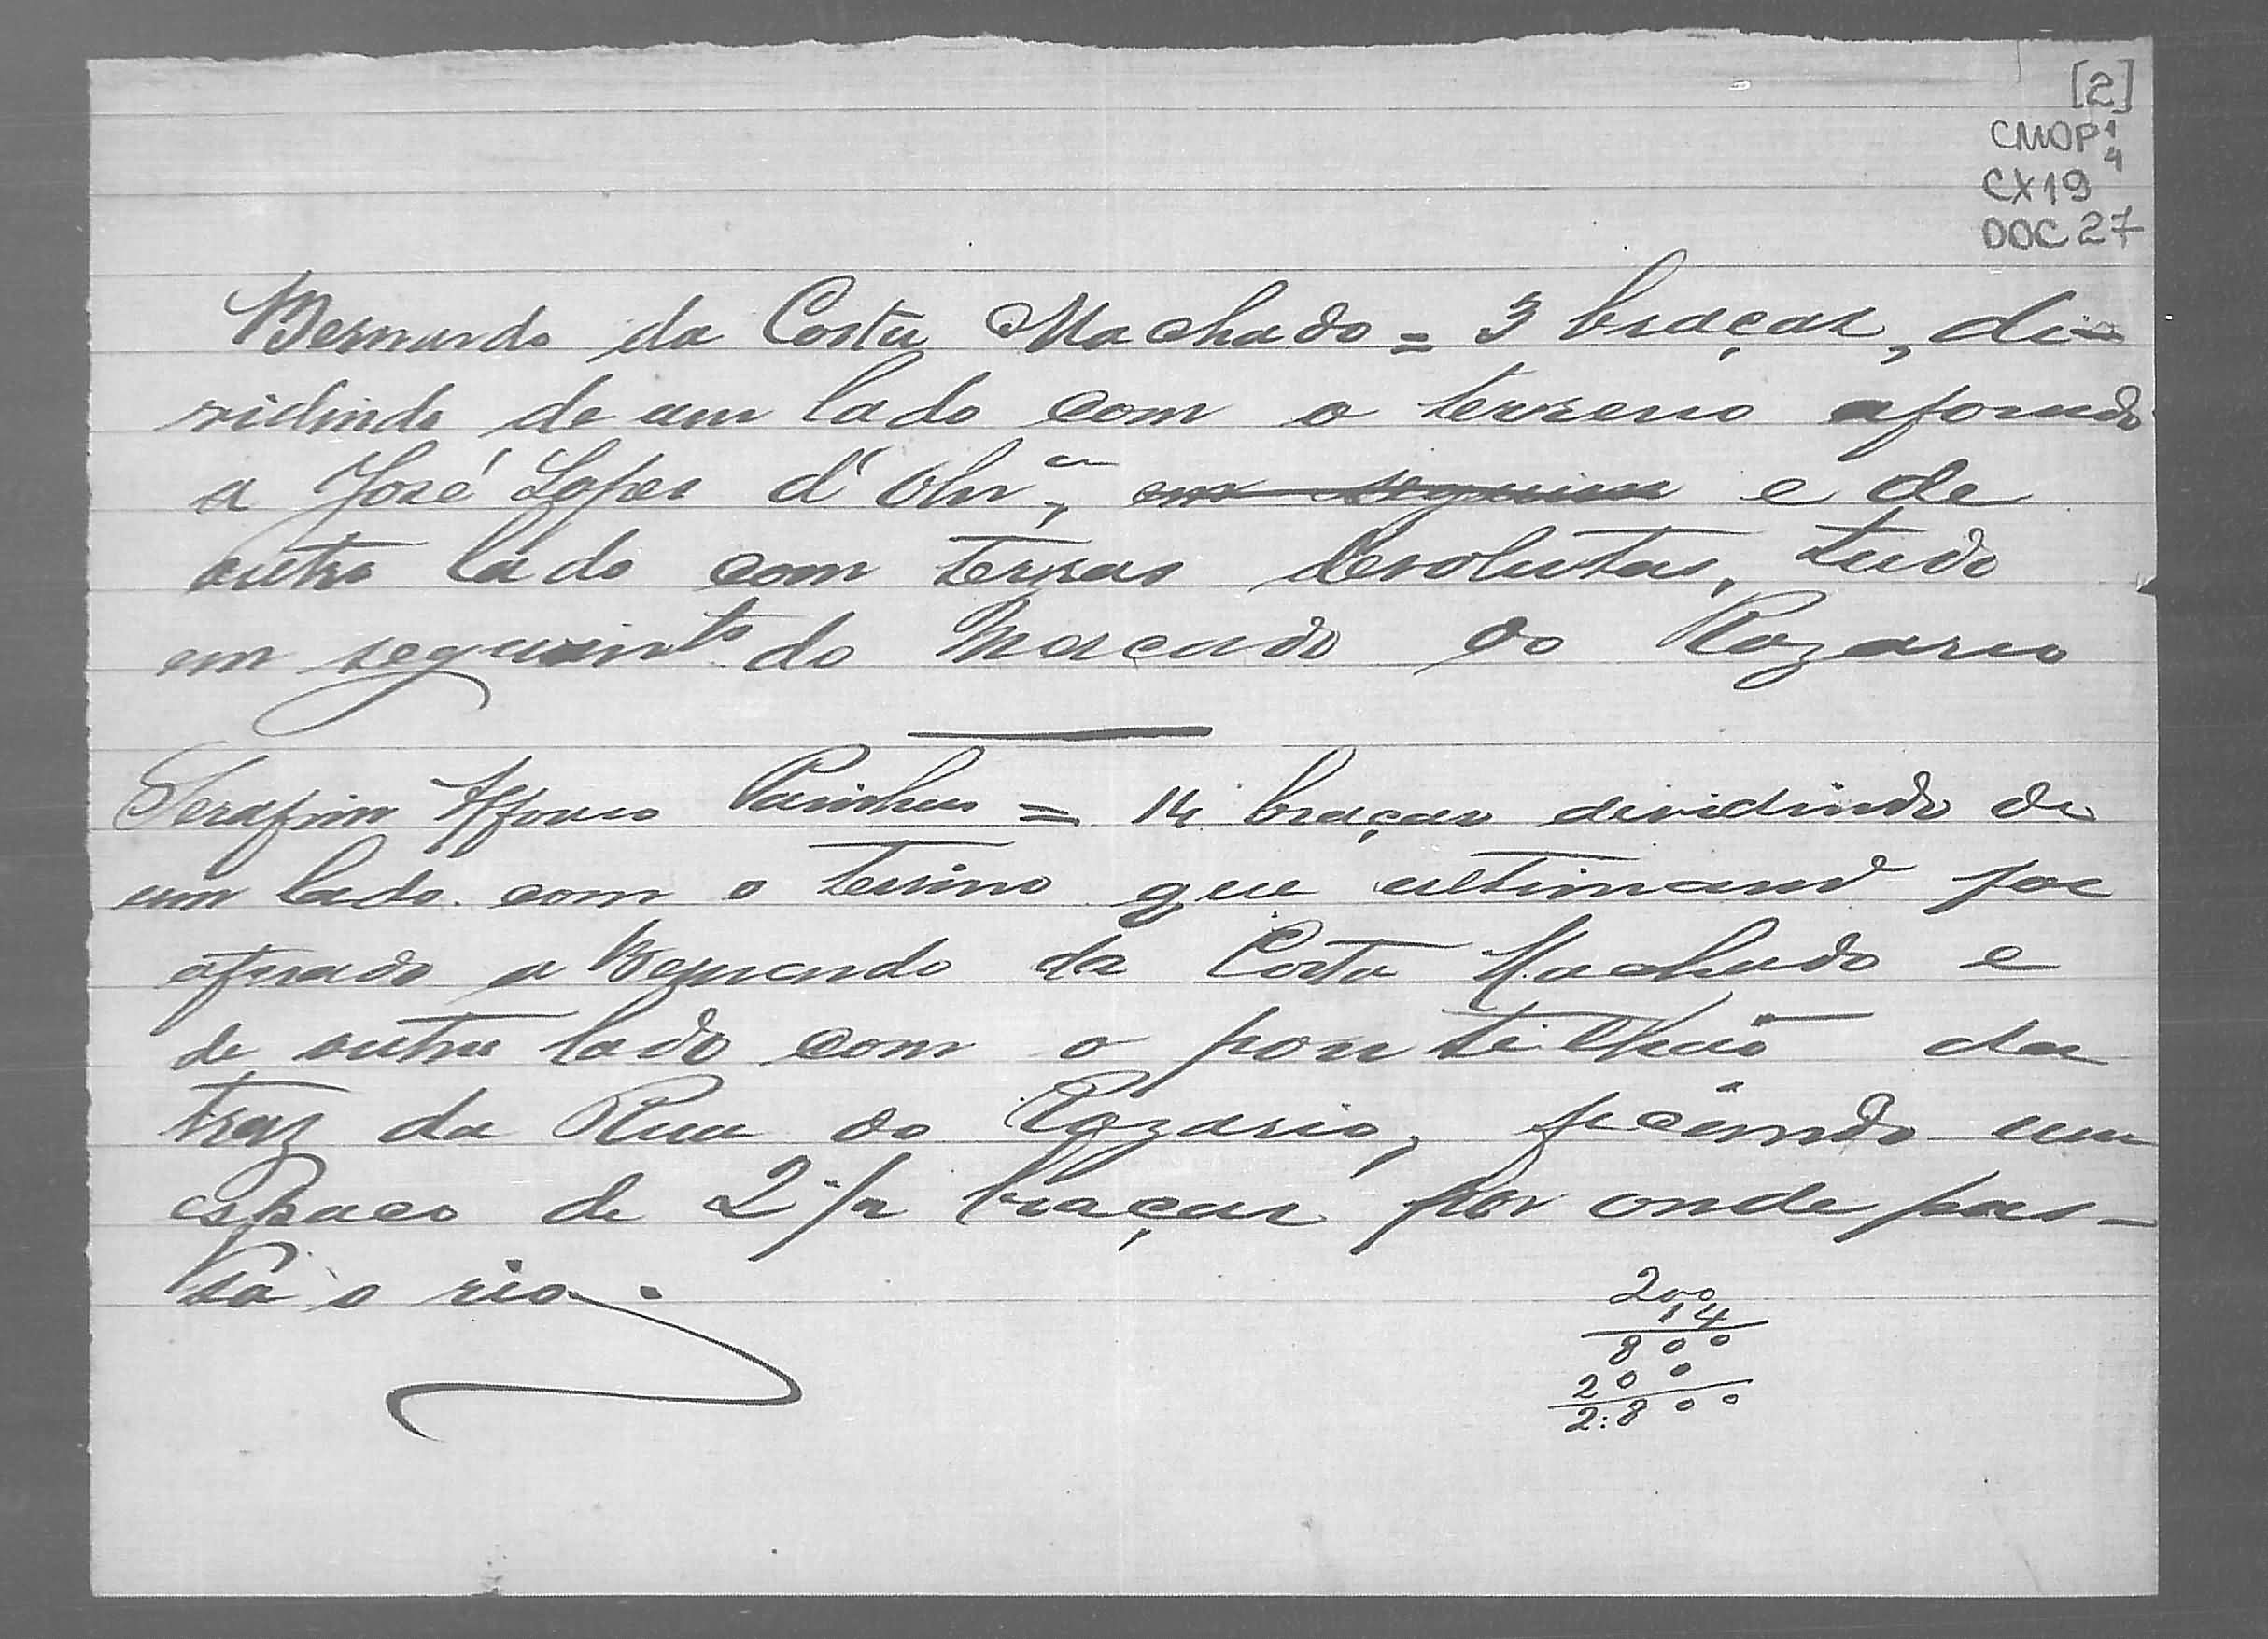 [2]
CMOP 1/4
CX19
DOC 27
Bernardo da Costa Machado = 3 braças, di-
vidindo de um lado com o terreno aforado
a José Lopes d'Olivrª, em seguim e de
outro lado com terras devolutas, tudo
em seguimtº do Macado do Rozario
Serafim Affonso = 14 braças dividindo de
um lado com o terino que ultimamº foe
aforado a Bernando da Costa Machado e
de outro lado com o pontilhão da
traz da Rua do Rozario, ficando um
espaco de 2 1/2 braças por onde pas-
sa o rio.
200
14
800
200
2:800